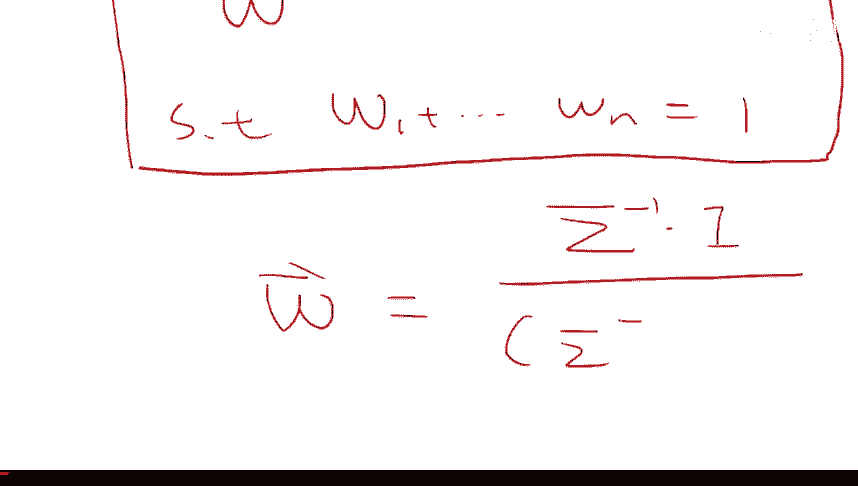 W
s.t W₁+ ... Wn = 1
Σ⁻¹ · 1
w⃗ =
(Σ⁻